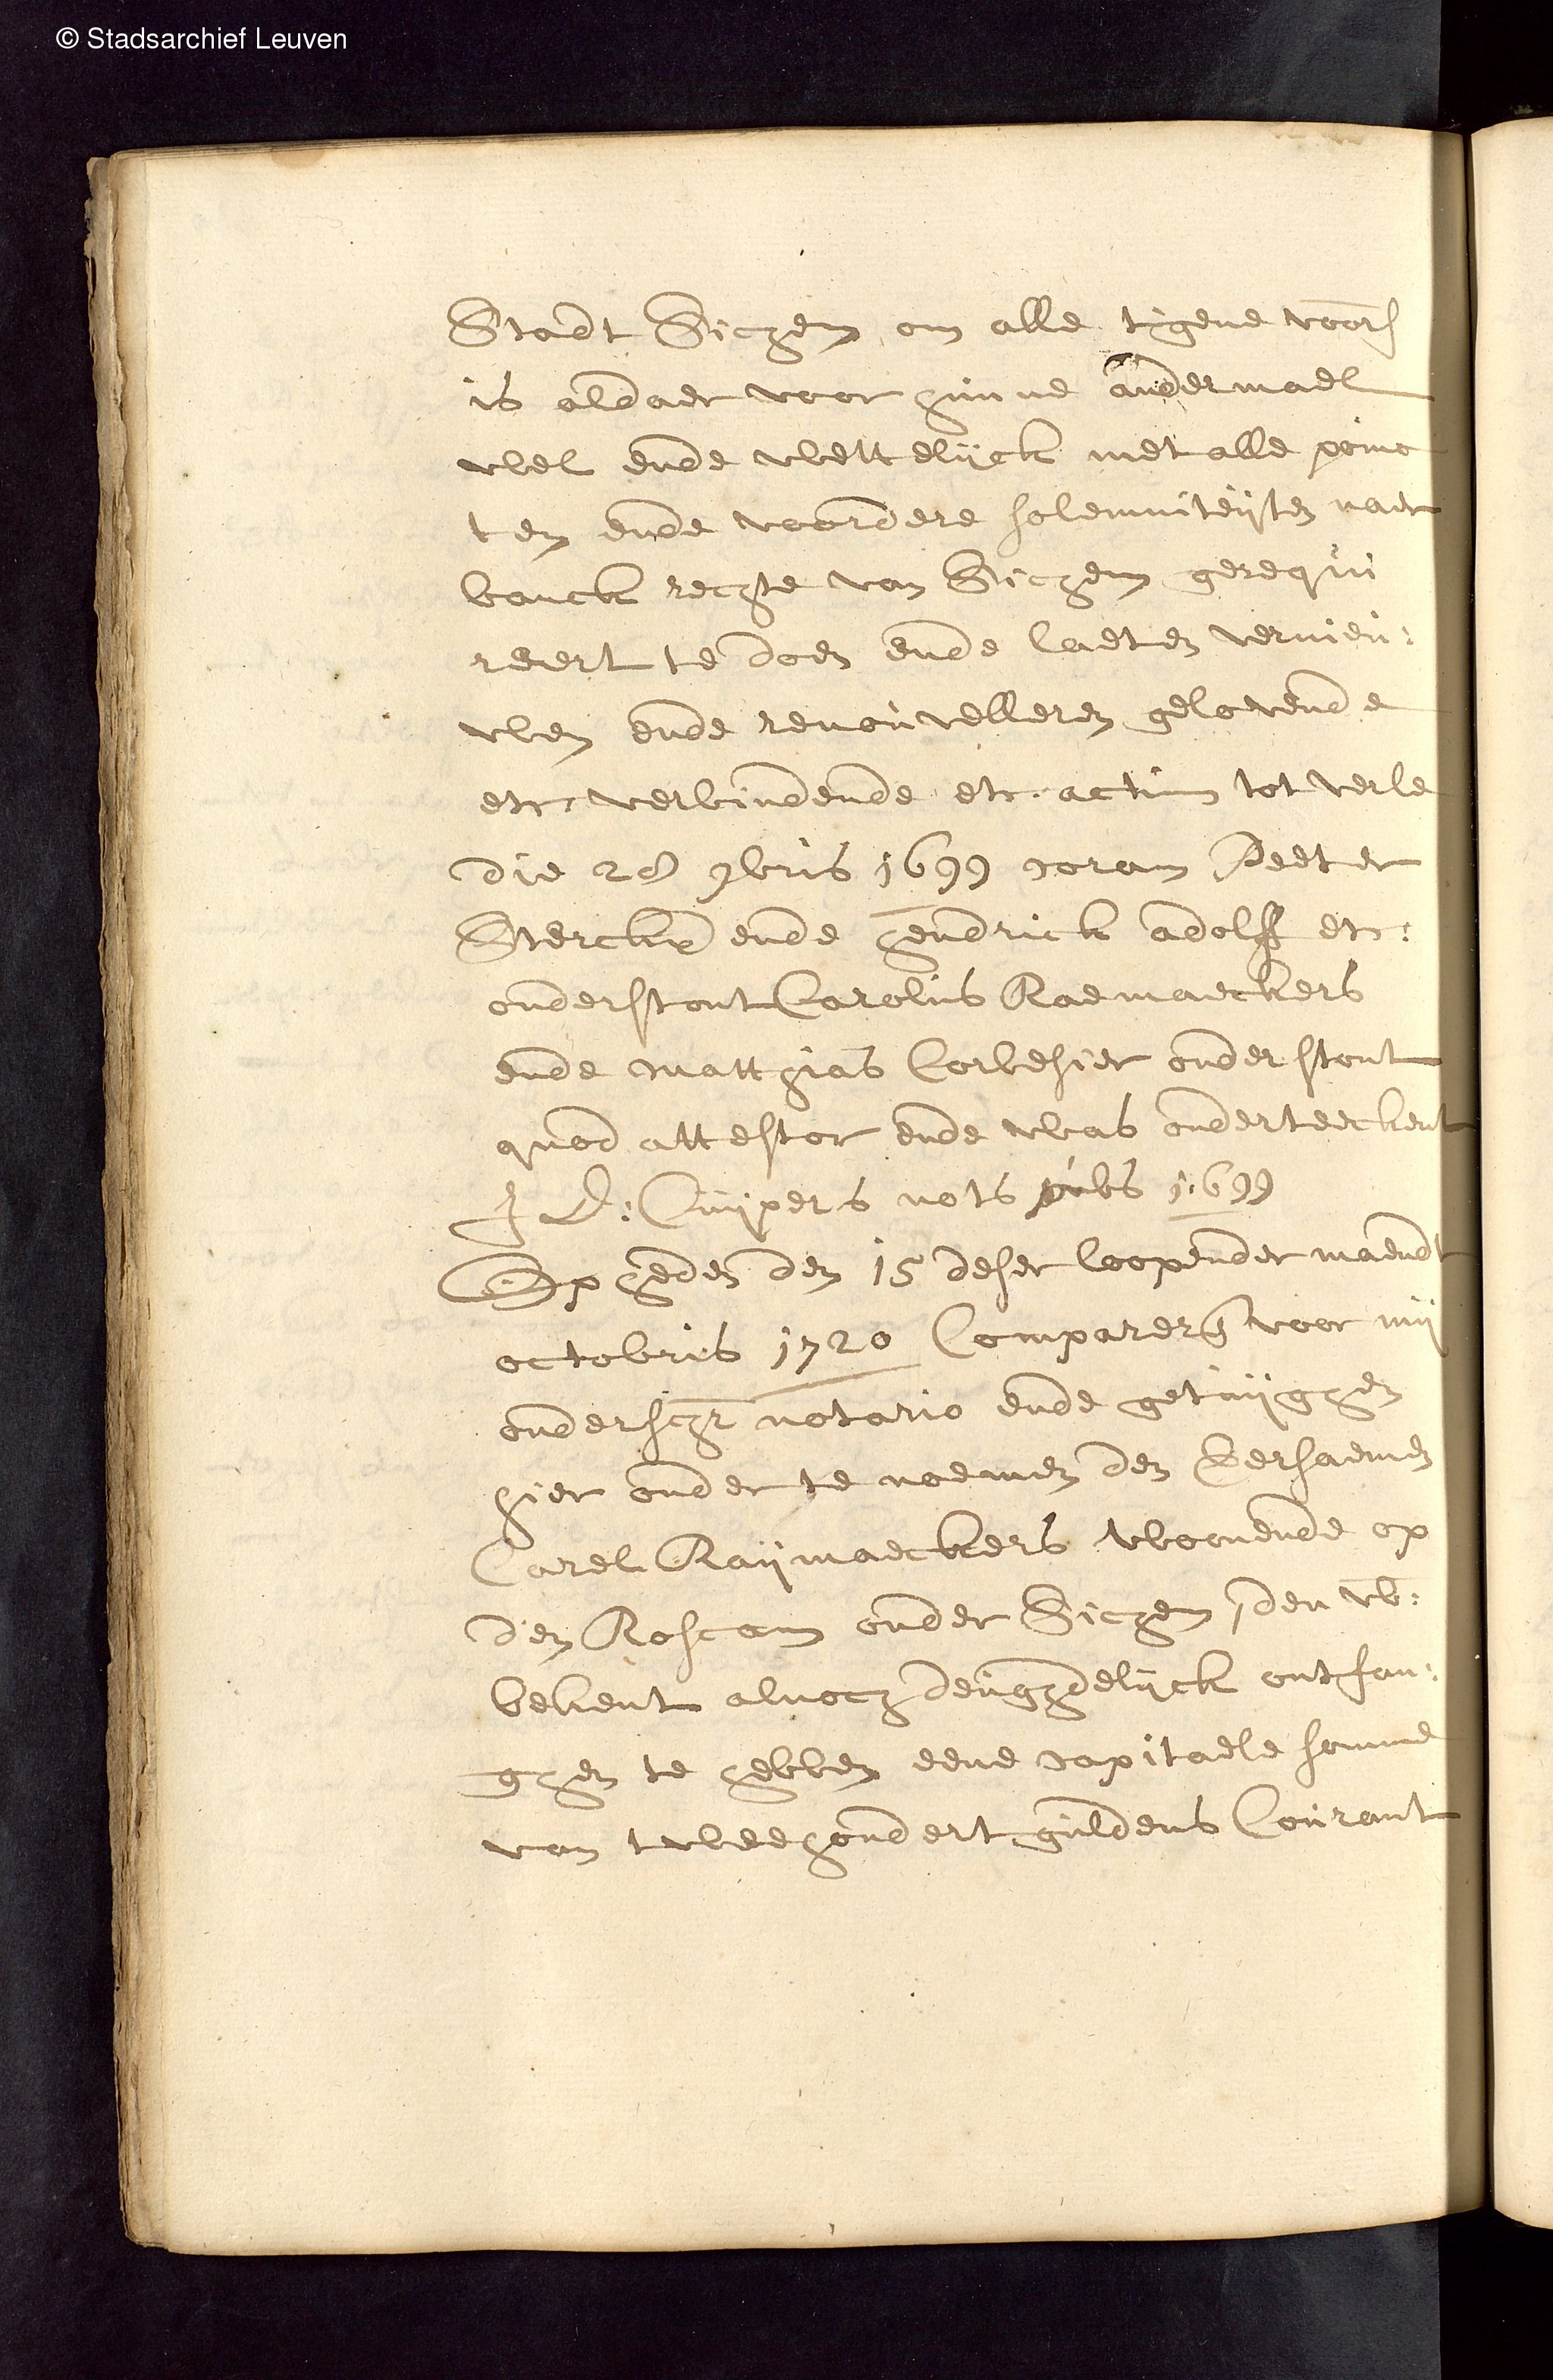 © Stadsarchief Leuven
Stadt Sichem om alle tgene voors
is aldaer voor hunne andermael
wel ende wettelijck met alle poinc
ten ende voordere solemniteijten naer
banck rechte van Sichem gerequi
reert te doen ende laeten vernieu:
wen ende renouvelleren gelovende
etc. verbindende etc. actum tot
die 28 9bris 1699 coram Peeter
Sterckx ende hendrick adolff etc:
onderstont Carolus Raemaeckers
ende Matthias Corbesier onderstont
quod attestor ende was onderteeckent
J D: Cuijpers nots pubs 1699
Op heden den 15 deser loopender maendt
octobris 1720 Comparerde voor mij
onderschr notario ende getuijghen
hier onder te noemen den Eersaemen
Carel Raijmaeckers woonende op
den Roscam onder Sichem, den w:
bekent alnoch deughdelijck ontfan:
ghen te hebben eene capitaele somme
van tweehondert guldens Courant